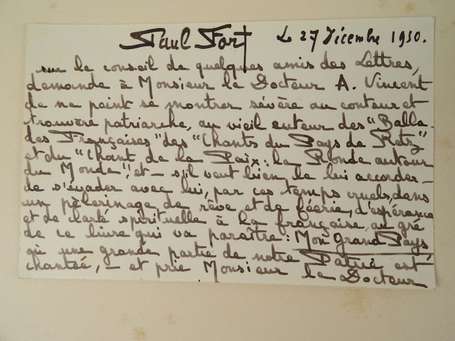 Paul Fort Le 27 Décembre 1950.
sur le conseil de quelques amis des Lettres,
demande à Monsieur le Docteur A. Vincent
de ne point se montrer sévère au conteur et
trouvère patriarche, au vieil auteur des "Balla-
des Françaises" des "Chants du Pays de Retz"
et du "Chant de la Paix: la Ronde autour
du Monde", et - s'il veut bien le lui accorder -
de s'évader avec lui, par ces temps cruels, dans
un pèlerinage de rêve et de féerie, d'espérance
et de clarté spirituelle à la française, au gré
de ce livre qui va paraître: Mon Grand Pays
où une grande partie de notre Patrie est
chantée, - et prie Monsieur le Docteur